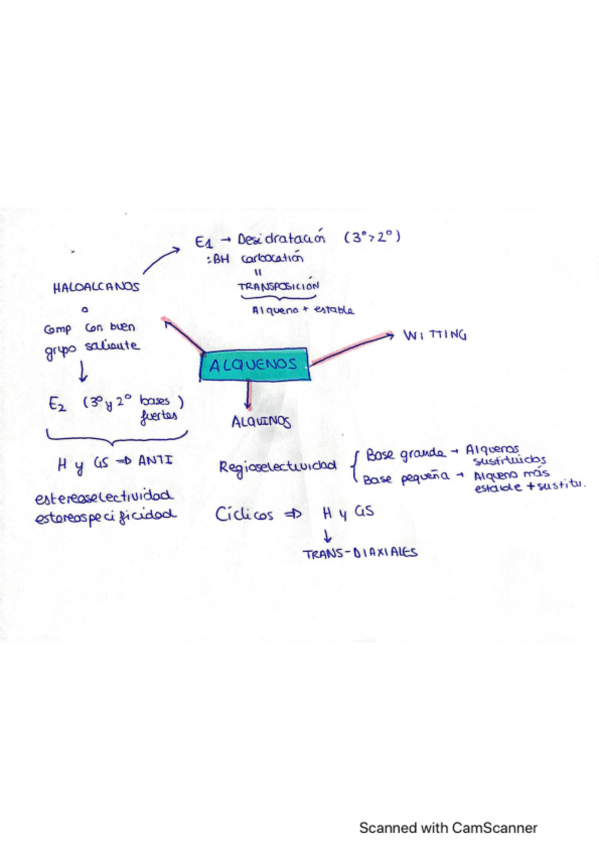 E1 → Desidratación (3º>2º)
:BH carbocatión
=
TRANSPOSICIÓN
Alqueno + estable
HALOALCANOS
o
Comp con buen
grupo saliente
E2 (3º y 2º bases fuertes)
H y GS ⇒ ANTI
estereoselectividad
estereospecificidad
ALQUENOS
WITTING
ALQUINOS
Regioselectividad
Base grande → Alquenos
sustituidos
Base pequeña → Alqueno más
estable + sustitu.
Cíclicos ⇒ H y GS
↓
TRANS-DIAXIALES
Scanned with CamScanner